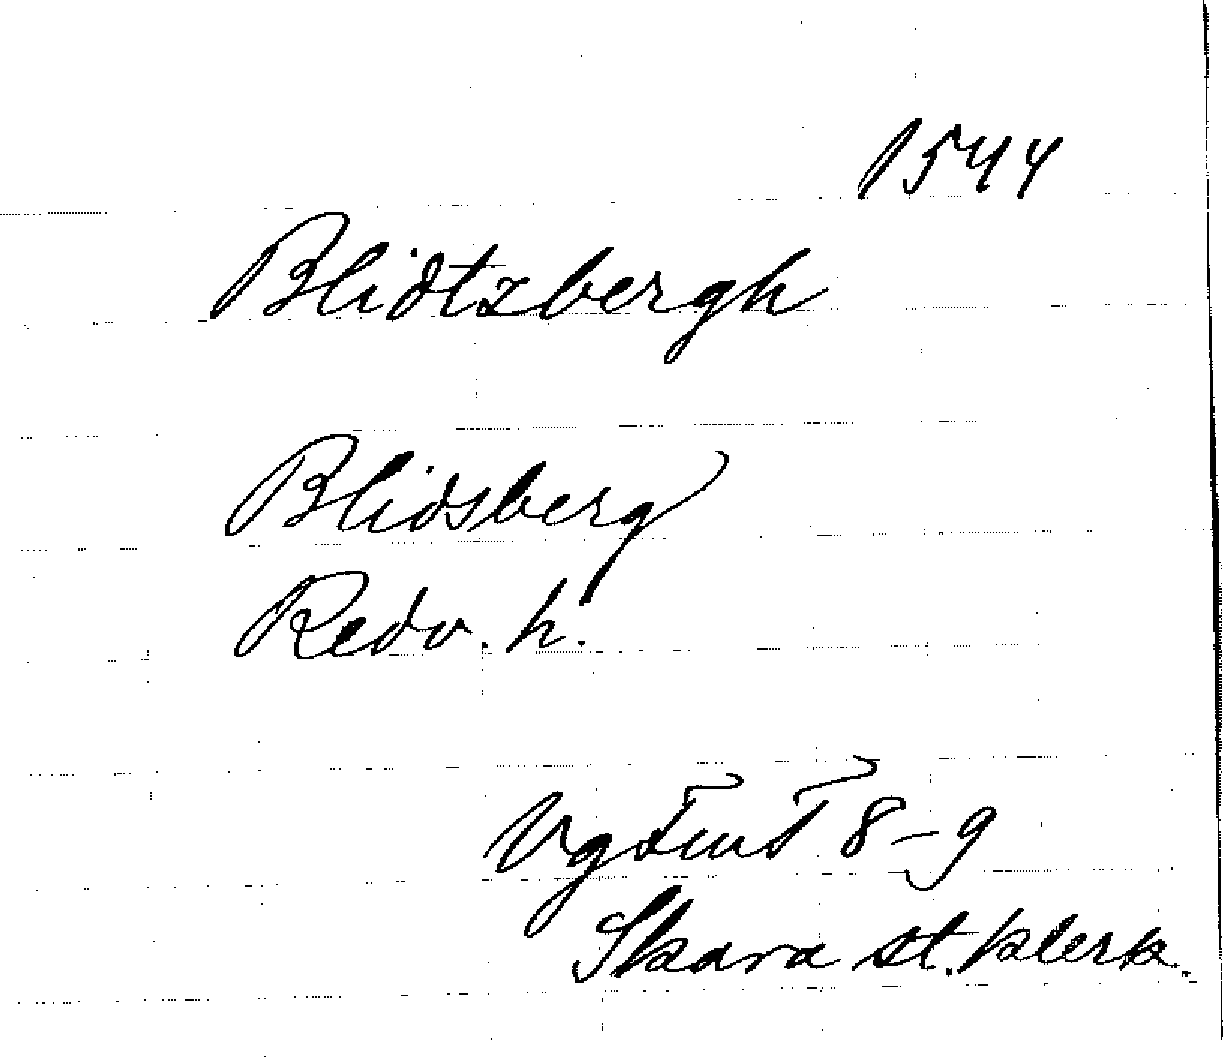 1544
Blidtzbergh
Blidsberg
Redv. h.
VgFmT 8-9
Skara st. klerk.